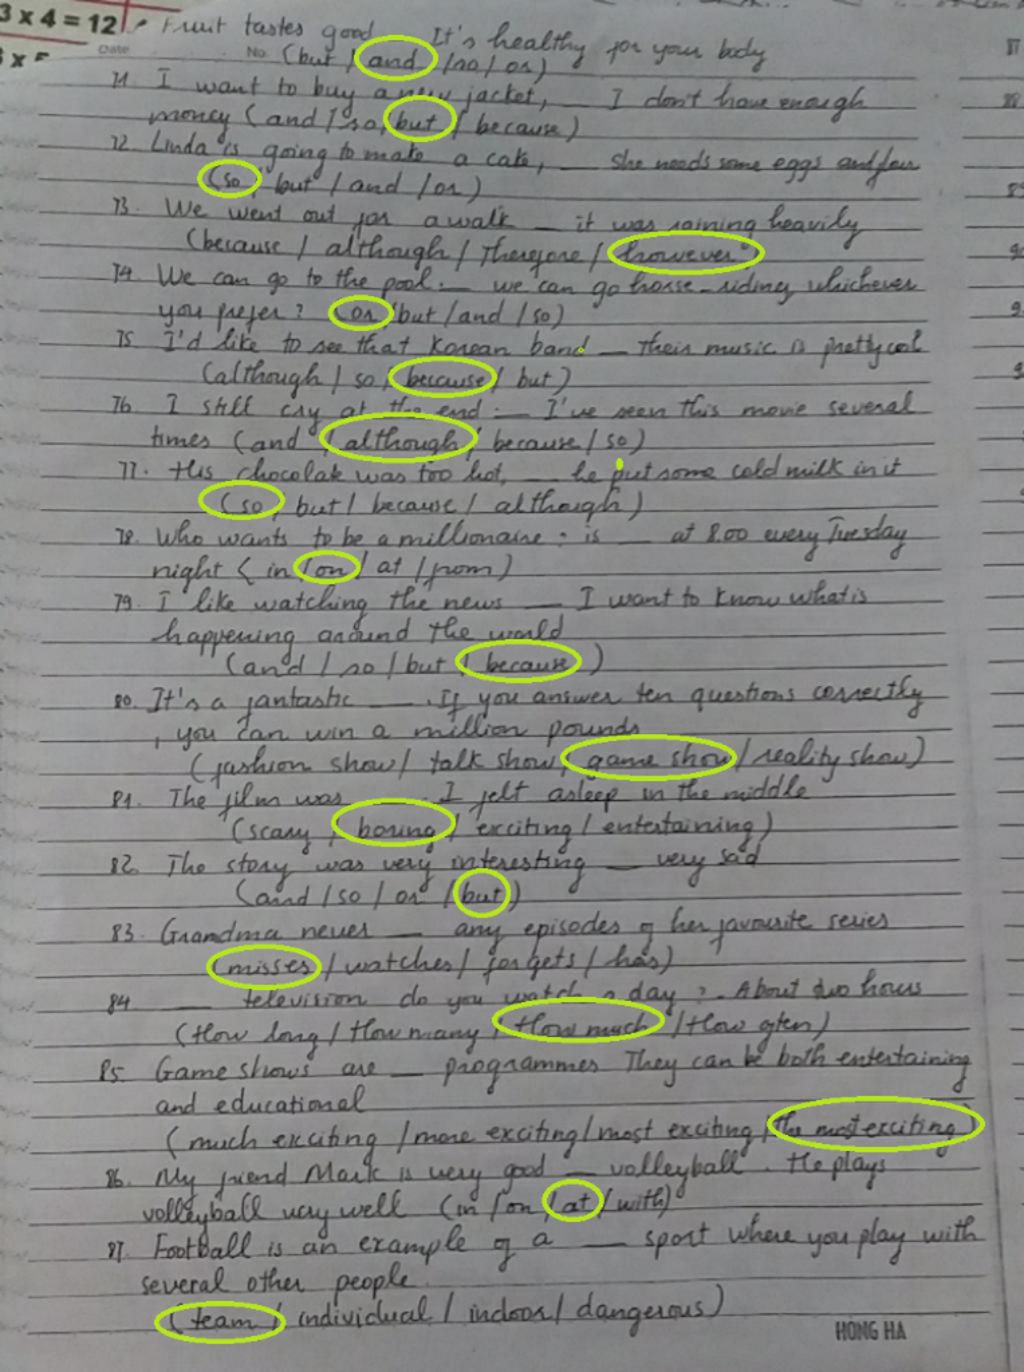 3 x 4 = 12 Fruit tastes good It's healthy for your body
Date No. (but / and / so / or)
71. I want to buy a new jacket, __ I don't have enough
money (and / so / but / because)
72. Linda is going to make a cake, __ she needs some eggs and
(so / but / and / or)
73. We went out for a walk __ it was raining heavily
(because / although / Therefore / however)
74. We can go to the pool __ we can go horse-riding whichever
you prefer? (or / but / and / so)
75. I'd like to see that Korean band __ Their music is pretty cool
(although / so / because / but)
76. I still cry at the end __ I've seen this movie several
times (and / although / because / so)
77. His chocolate was too hot, __ he put some cold milk in it
(so / but / because / although)
78. Who wants to be a millionaire : is __ at 8.00 every Tuesday
night ( in / on / at / from)
79. I like watching the news __ I want to know what is
happening around the world
(and / so / but / because)
80. It's a fantastic __. If you answer ten questions correctly
, you can win a million pounds
(fashion show / talk show / game show / reality show)
81. The film was __ I felt asleep in the middle
(scary / boring / exciting / entertaining)
82. The story was very interesting __ very sad
(and / so / or / but)
83. Grandma never __ any episodes of her favourite series
(misses / watches / forgets / has)
84. __ television do you watch a day ? . About two hours
(How long / How many / How much / How often)
85. Game shows are __ programmes They can be both entertaining
and educational
(much exciting / more exciting / most exciting / the most exciting)
86. My friend Mark is very good __ volleyball. He plays
volleyball very well (in / on / at / with)
87. Football is an example of a __ sport where you play with
several other people.
(team / individual / indoor / dangerous)
HONG HA